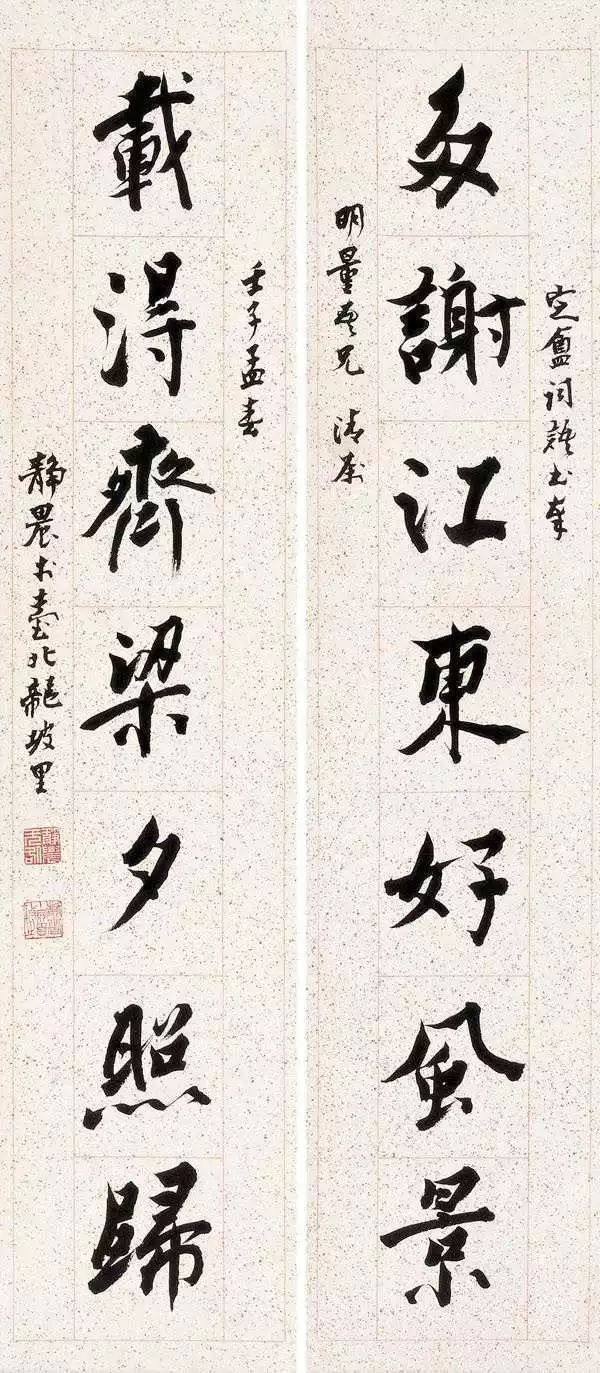 定盦詞書奉
多謝江東好風景
明量吾兄 清屬
壬子孟春
載得齊梁夕照歸
靜農於臺北龍坡里